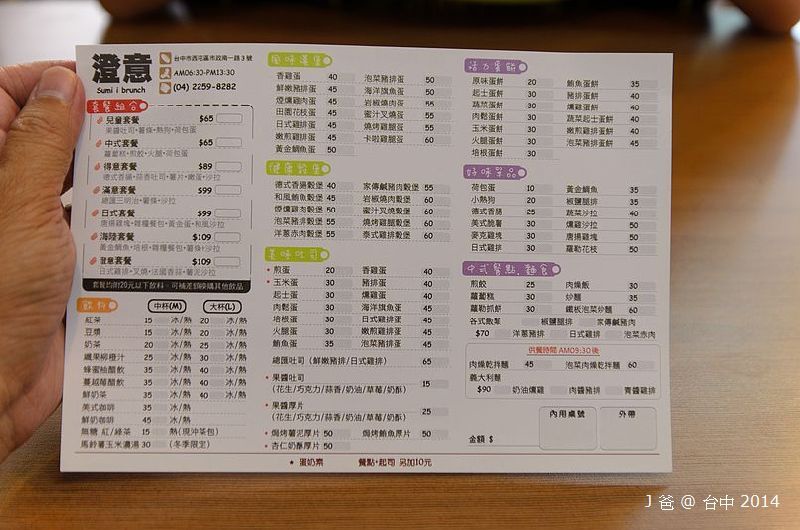 澄意
Sumi i brunch
台中市西屯區市政南一路3號
AM06:30-PM13:30
(04) 2259-8282
套餐組合
兒童套餐 $65
果醬吐司•薯條•熱狗•荷包蛋
中式套餐 $65
蘿蔔糕•煎餃•火腿•荷包蛋
得意套餐 $89
德式香腸•蒜香吐司•薯片•嫩蛋•沙拉
滿意套餐 $99
總匯三明治•薯條•沙拉
日式套餐 $99
唐揚雞塊•雜糧餐包•黃金蛋•和風沙拉
海陸套餐 $109
黃金鯛魚•培根•雜糧餐包•薯條•沙拉
澄意套餐 $109
日式雞排•叉燒•法國香蒜•薯泥沙拉
套餐均附20元以下飲料，可補差額換購其他飲品
飲料 中杯(M) 大杯(L)
紅茶 15 冰/熱 20 冰/熱
豆漿 15 冰/熱 20 冰/熱
奶茶 20 冰/熱 25 冰/熱
纖果柳橙汁 25 冰/熱 30 冰/熱
蜂蜜柚醋飲 35 冰/熱 40 冰/熱
蔓越莓醋飲 35 冰/熱 40 冰/熱
鮮奶茶 35 冰/熱 40 冰/熱
美式咖啡 35 冰/熱
鮮奶咖啡 45 冰/熱
無糖 紅/綠茶 15 熱(現沖茶包)
馬鈴薯玉米濃湯 30 (冬季限定)
風味漢堡
香雞蛋 40 泡菜豬排蛋 50
鮮嫩豬排蛋 45 海洋旗魚蛋 50
煙燻雞肉蛋 45 岩椒燒肉蛋 50
田園花枝蛋 45 蜜汁叉燒蛋 55
日式雞排蛋 45 燒烤雞腿蛋 60
嫩煎雞排蛋 45 卡啦雞腿蛋 60
黃金鯛魚蛋 50
健康穀堡
德式香腸穀堡 40 家傳鹹豬肉穀堡 55
和風鮪魚穀堡 45 岩椒燒肉穀堡 60
煙燻雞肉穀堡 50 蜜汁叉燒穀堡 60
泡菜豬排穀堡 55 燒烤雞腿穀堡 60
洋蔥赤肉穀堡 55 泰式雞排穀堡 60
美味吐司
• 煎蛋 20 香雞蛋 40
• 玉米蛋 30 豬排蛋 40
起士蛋 30 燻雞蛋 40
肉鬆蛋 30 海洋旗魚蛋 45
培根蛋 30 日式雞排蛋 45
火腿蛋 30 嫩煎雞排蛋 45
鮪魚蛋 35 泡菜豬排蛋 45
總匯吐司 (鮮嫩豬排/日式雞排) 65
• 果醬吐司 15
(花生/巧克力/蒜香/奶油/草莓/奶酥)
• 果醬厚片 25
(花生/巧克力/蒜香/奶油/草莓/奶酥)
• 焗烤薯泥厚片 50 焗烤鮪魚厚片 50
• 杏仁奶酥厚片 50
活力蛋餅
原味蛋餅 20 鮪魚蛋餅 35
起士蛋餅 30 豬排蛋餅 40
蔬菜蛋餅 30 燻雞蛋餅 40
肉鬆蛋餅 30 蔬菜起士蛋餅 40
玉米蛋餅 30 嫩煎雞排蛋餅 40
火腿蛋餅 30 泡菜豬排蛋餅 45
培根蛋餅 30
好味單品
荷包蛋 10 黃金鯛魚 35
小熱狗 20 椒鹽腿排 35
德式香腸 25 蔬菜沙拉 40
美式脆薯 30 燻雞沙拉 50
麥克雞塊 30 唐揚雞塊 50
日式雞排 30 蘿勒花枝 50
中式餐點、麵食
煎餃 25 肉燥飯 30
蘿蔔糕 30 炒麵 35
蘿勒抓餅 30 鐵板泡菜炒麵 60
各式飯糰 椒鹽腿排 家傳鹹豬肉
$70 洋蔥豬排 日式雞排 泡菜赤肉
供餐時間 AM09:30後
肉燥乾拌麵 45 泡菜肉燥乾拌麵 60
義大利麵
$90 奶油燻雞 肉醬豬排 青醬雞排
金額 $ 內用桌號 外帶
★ 蛋奶素 餐點+起司 另加10元
J 爸 @ 台中 2014